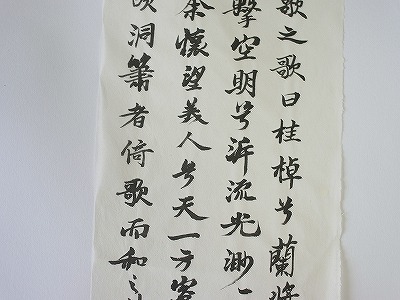 歌之歌曰桂棹兮蘭槳
擊空明兮泝流光渺
余懷望美人兮天一方客
吹洞簫者倚歌而和之